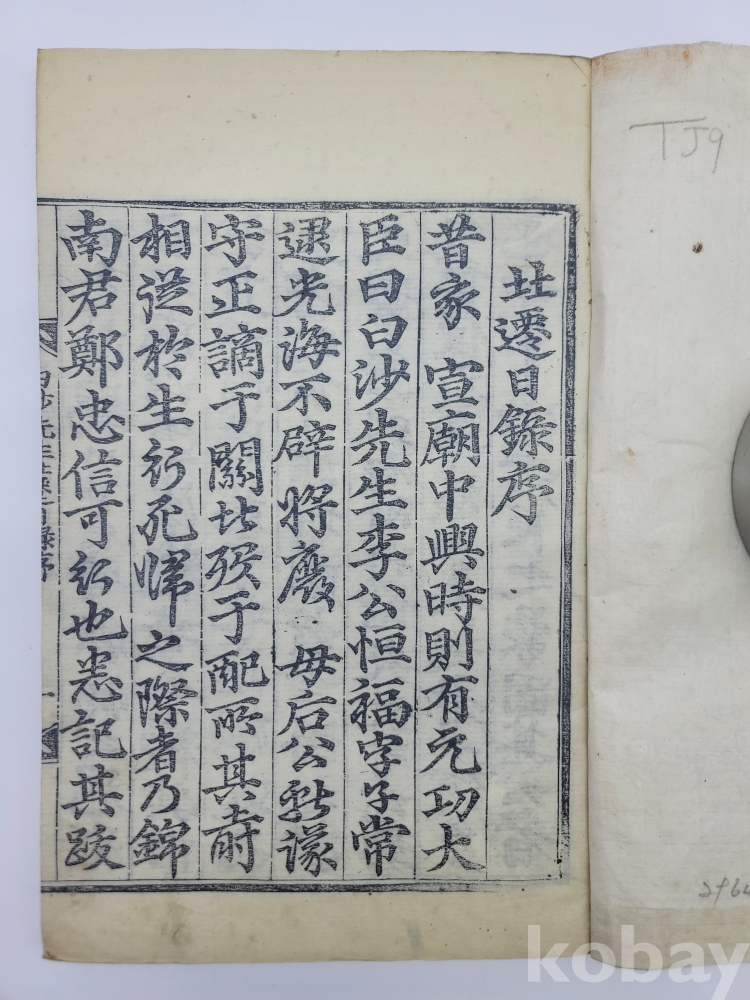 北遷日錄序
昔家 宣廟中興時則有元功大
臣曰白沙先生李公恒福字子常
逮光海不辟將廢 母后公獻議
守正謫于關北歿于配所其
相從於生行死歸之際者乃錦
南君鄭忠信可行也悉記其跋
白沙先生北遷日錄序 一
TJ9
kobay